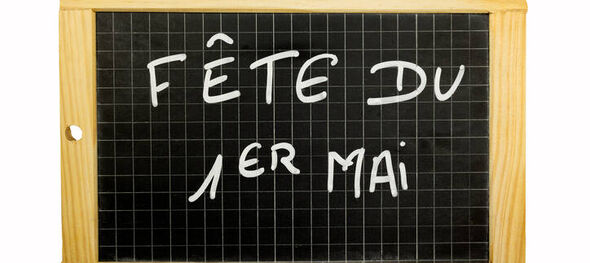 FÊTE DU
1ER MAi